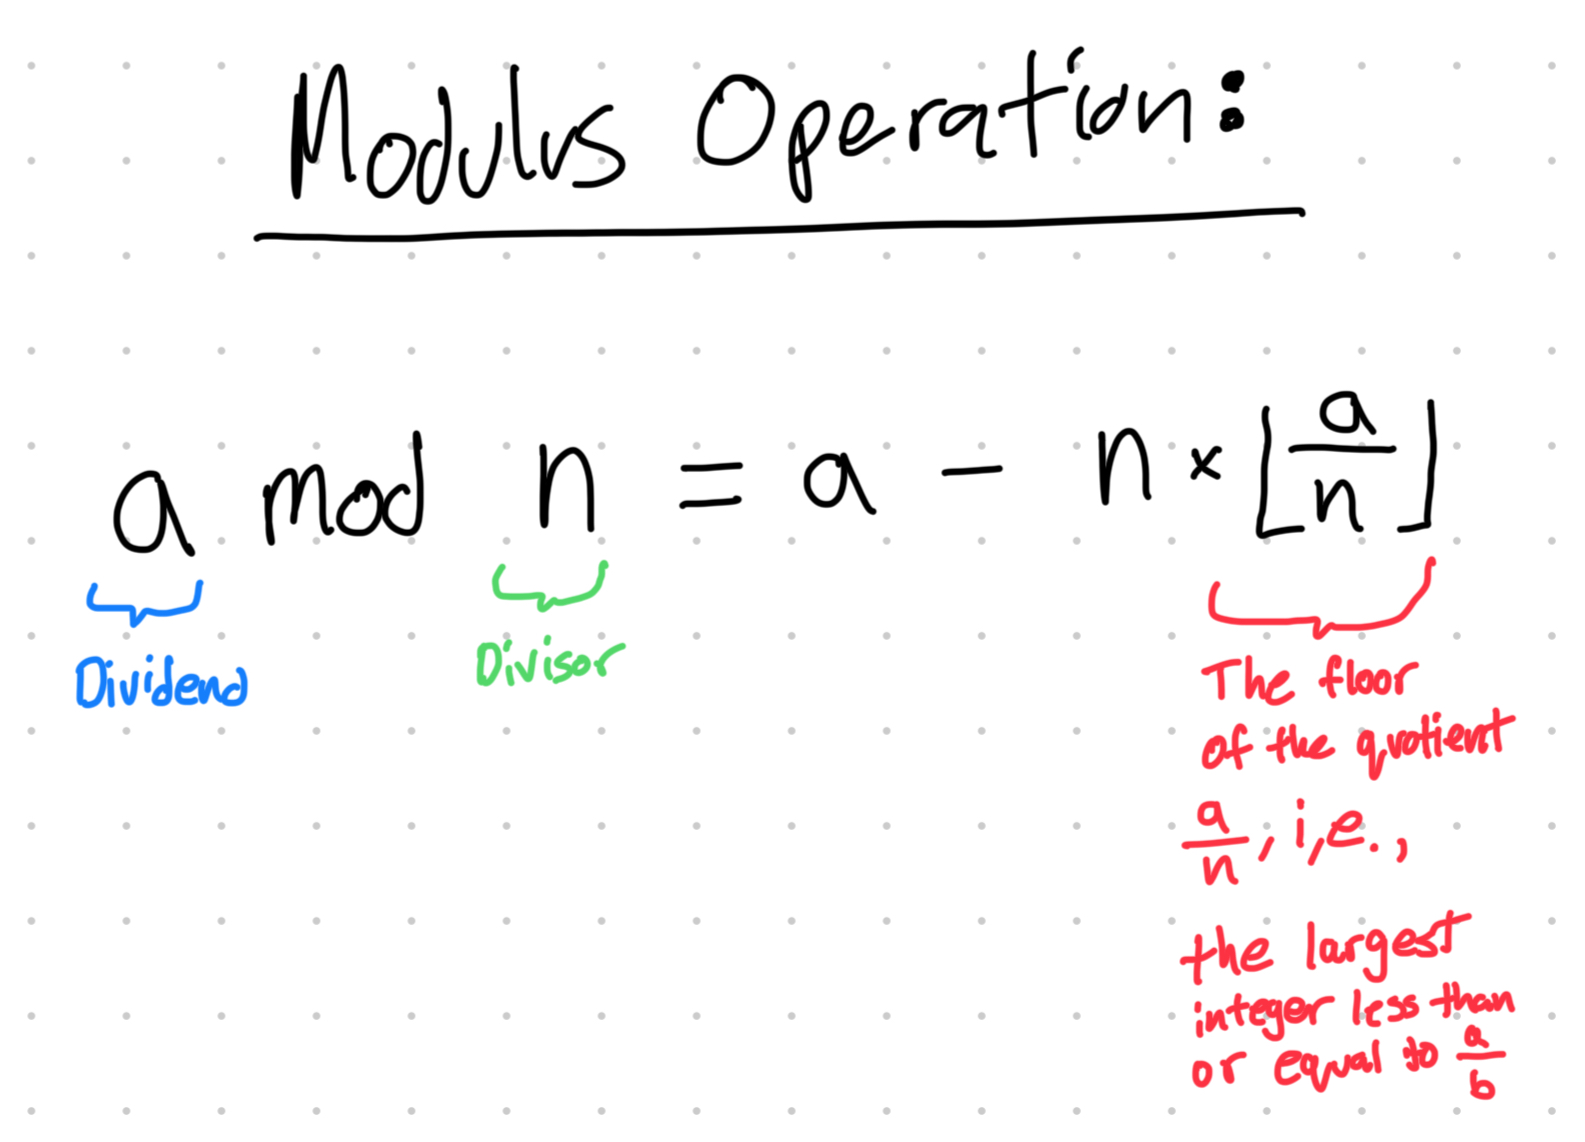 Modulus Operation:
a mod n = a - n × ⌊a/n⌋
Dividend
Divisor
The floor
of the quotient
a/n, i,e.,
the largest
integer less than
or equal to a/b